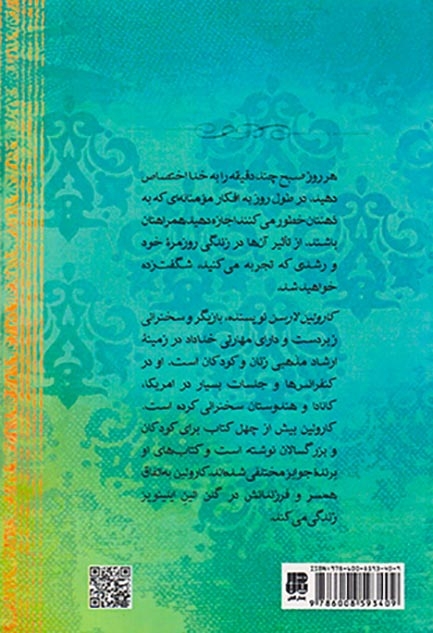 هر روز صبح چند دقیقه را به خدا اختصاص
دهید. در طول روز به افکار مؤمنانه‌ای که به
ذهنتان خطور می‌کنند اجازه دهید همراهتان
باشند. از تأثیر آن‌ها در زندگی روزمرهٔ خود
و رشدی که تجربه می‌کنید، شگفت‌زده
خواهید شد.
کارولین لارسن نویسنده، بازیگر و سخنرانی
زبردست و دارای مهارتی خداداد در زمینهٔ
ارشاد مذهبی زنان و کودکان است. او در
کنفرانس‌ها و جلسات بسیار در امریکا،
کانادا و هندوستان سخنرانی کرده است.
کارولین بیش از چهل کتاب برای کودکان
و بزرگسالان نوشته است و کتاب‌های او
برندهٔ جوایز مختلفی شده‌اند. کارولین به‌اتفاق
همسر و فرزندانش در گلن الین ایلینویز
زندگی می‌کند.
ISBN: 978-600-8593-40-9
9786008593409